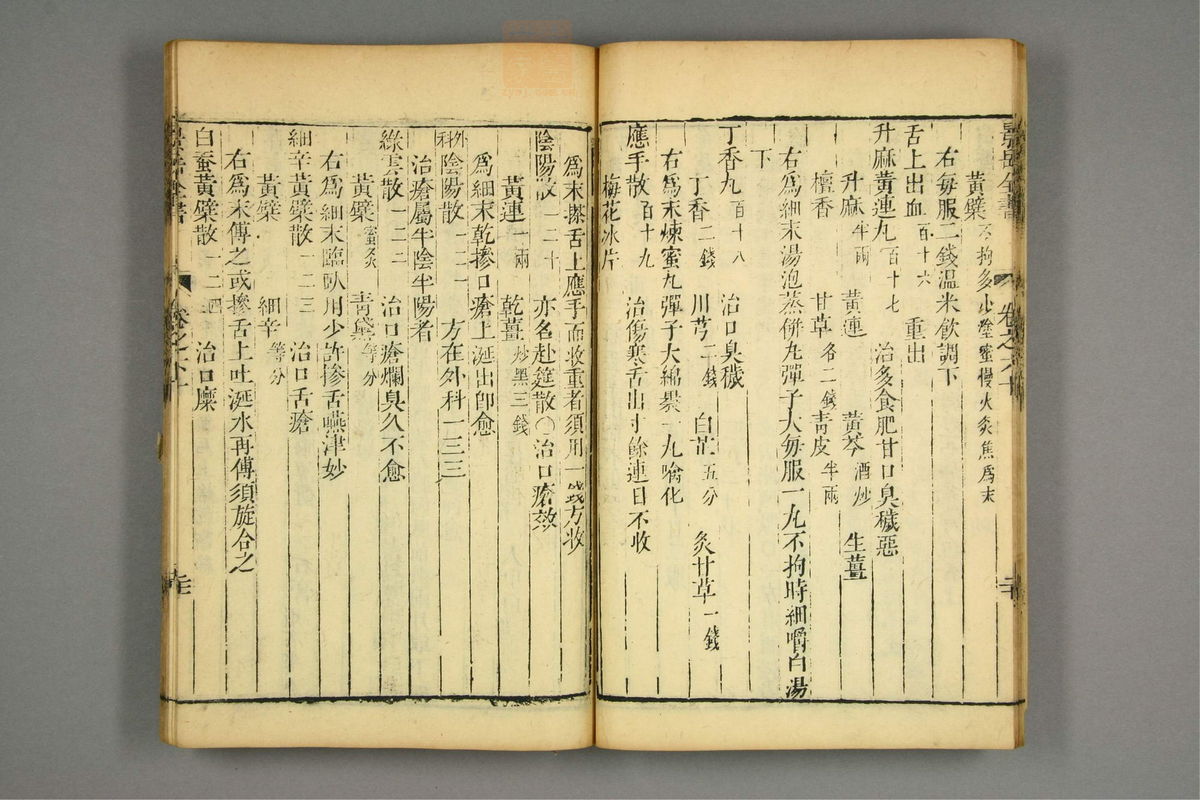 景岳全書 卷之六十
黃檗 不拘多少塗蜜慢火炙焦爲末
右每服二錢溫米飲調下
舌上出血 百十六 重出
升麻黃連丸 百十七 治多食肥甘口臭穢惡
升麻 半兩 黃連 黃芩 酒炒 生薑
檀香 甘草 各二錢 青皮 半兩
右爲細末湯泡蒸餅丸彈子大每服一丸不拘時細嚼白湯
下
丁香丸 百十八 治口臭穢
丁香 二錢 川芎 二錢 白芷 五分 炙甘草 一錢
右爲末煉蜜丸彈子大綿褁一丸噙化
應手散 百十九 治傷寒舌出寸餘連日不收
梅花冰片
爲末搽舌上應手而收重者須用一錢方收
陰陽散 一二十 亦名赴筵散○治口瘡效
黃連 一兩 乾薑 炒黑三錢
爲細末乾摻口瘡上涎出卽愈
外科陰陽散 一二一 方在外科一三三
治瘡屬半陰半陽者
綠雲散 一二二 治口瘡爛臭久不愈
黃檗 蜜炙 青黛 等分
右爲細末臨臥用少許摻舌嚥津妙
細辛黃檗散 一二三 治口舌瘡
黃檗 細辛 等分
右爲末傅之或摻舌上吐涎水再傅須旋合之
白蚕黃檗散 一二四 治口糜
景岳全書 卷之六十